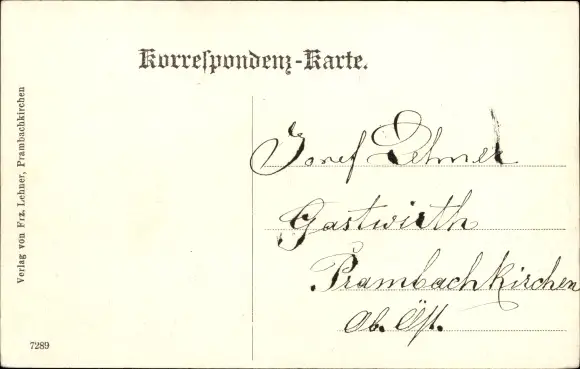 Korrespondenz-Karte.
Verlag von Frz. Lehner, Prambachkirchen
Josef Lehner
Gastwirth
Prambachkirchen
Ob. Öst.
7289